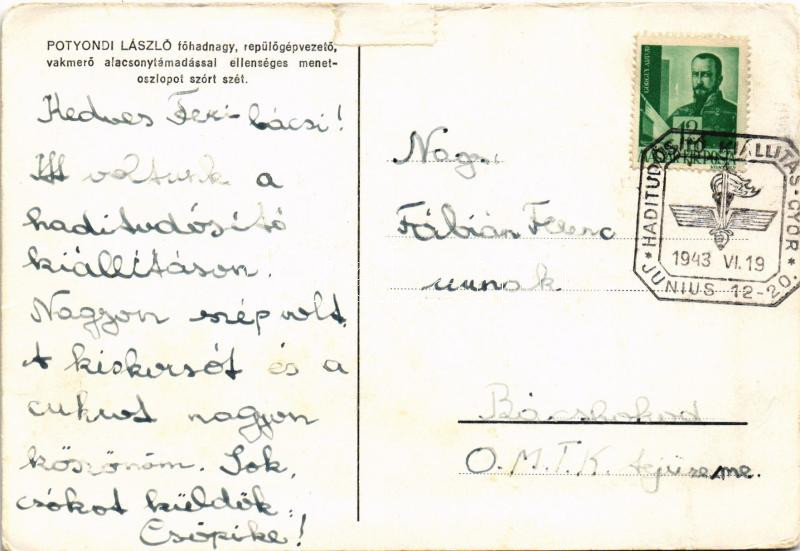 POTYONDI LÁSZLÓ főhadnagy, repülőgépvezető,
vakmerő alacsonytámadással ellenséges menet-
oszlopot szórt szét.
Kedves Feri-bácsi!
Itt voltunk a
haditudósító
kiállításon.
Nagyon szép volt.
A kiskorsót és a
cukrot nagyon
köszönöm. Sok
csókot küldök:
Csöpike!
GÖRGEY ARTUR
12
MAGYAR KIR. POSTA
* HADITUDÓSÍTÓ KIÁLLÍTÁS-GYŐR *
1943 VI. 19
JUNIUS 12-20.
Nag.
Fábián Ferenc
urnak
Bácsbokod
O.M.T.K. tejüzeme.